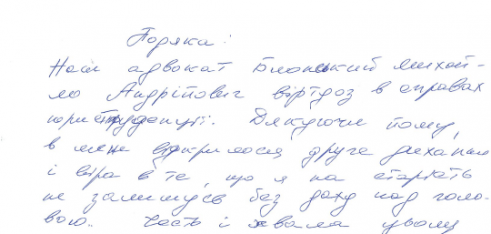 Подяка:
Наш адвокат Блонський Михай-
ло Андрійович віртуоз в справах
юриспруденції. Дякуючи йому,
в мене відкрилося друге дихання
і віра в те, що я на старість
не залишусь без даху над голо-
вою. Честь і хвала цьому